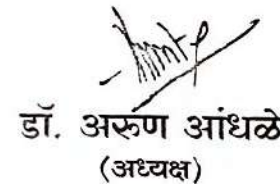 डॉ. अरुण आंधळे
(अध्यक्ष)